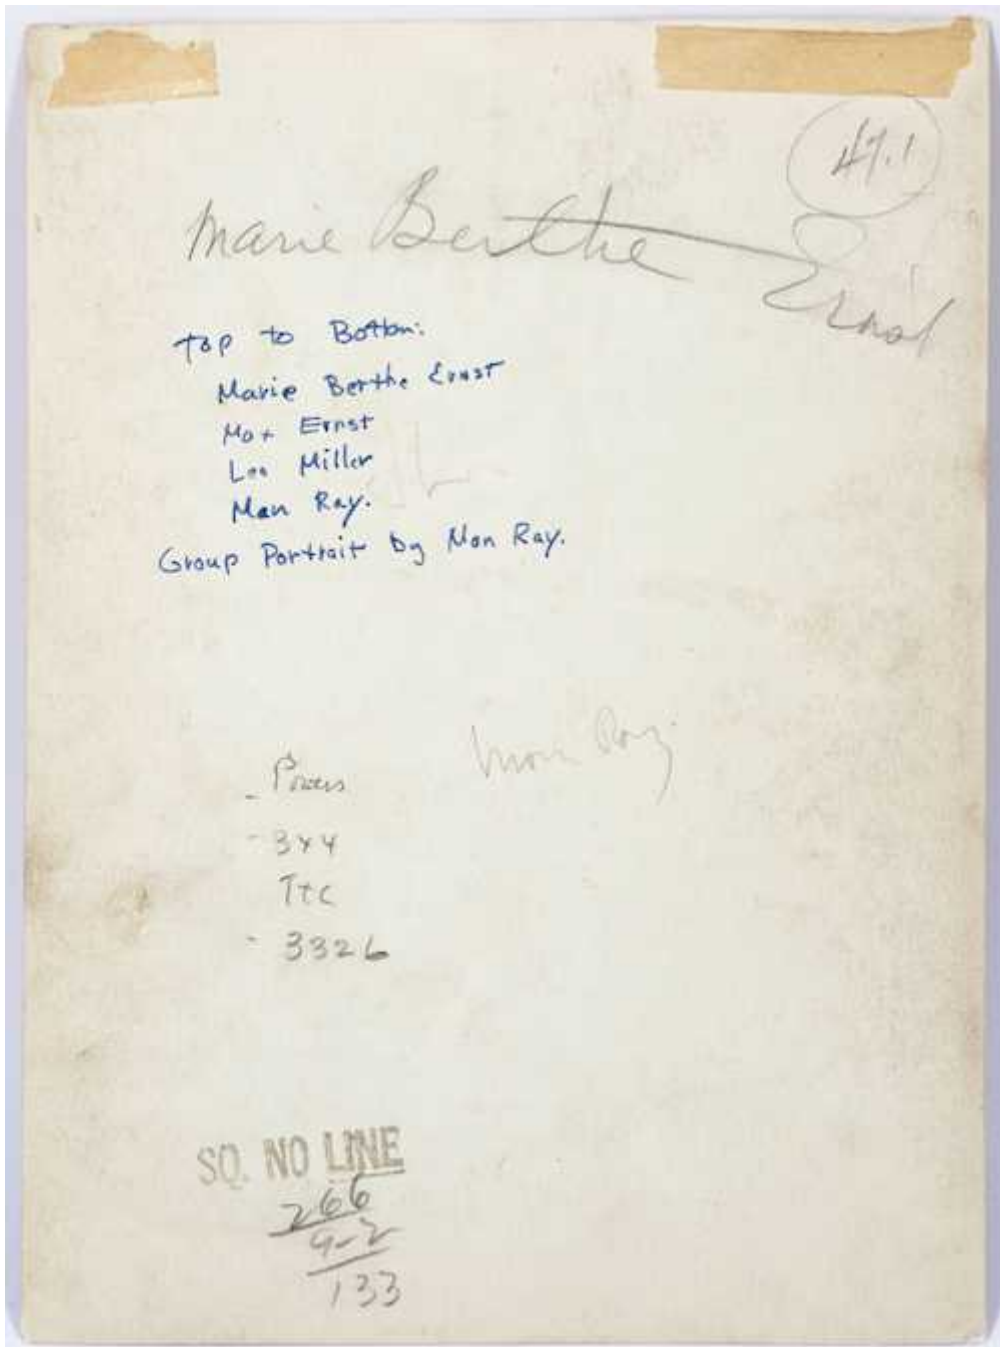 47.1
Marie Berthe Ernst
Top to Bottom:
Marie Berthe Ernst
Max Ernst
Lee Miller
Man Ray.
Group Portrait by Man Ray.
Man Ray.
- 3x4
TTC
- 3326
SQ. NO LINE
266
9-2
133